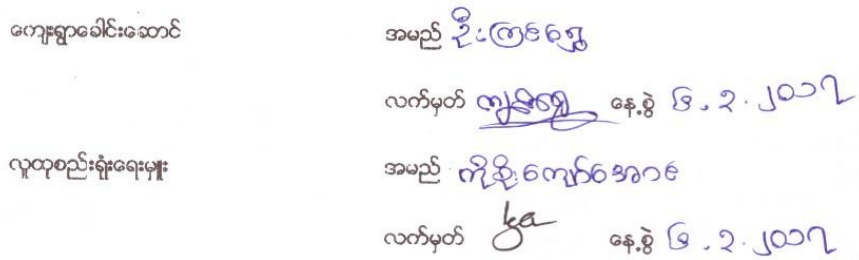 ကျေးရွာခေါင်းဆောင် အမည် ဦး
လက်မှတ် နေ့စွဲ ၆.၃.၂၀၁၇
လူထုစည်းရုံးရေးမှူး အမည် ကိုစိုးကျော်
လက်မှတ် နေ့စွဲ ၆.၃.၂၀၁၇